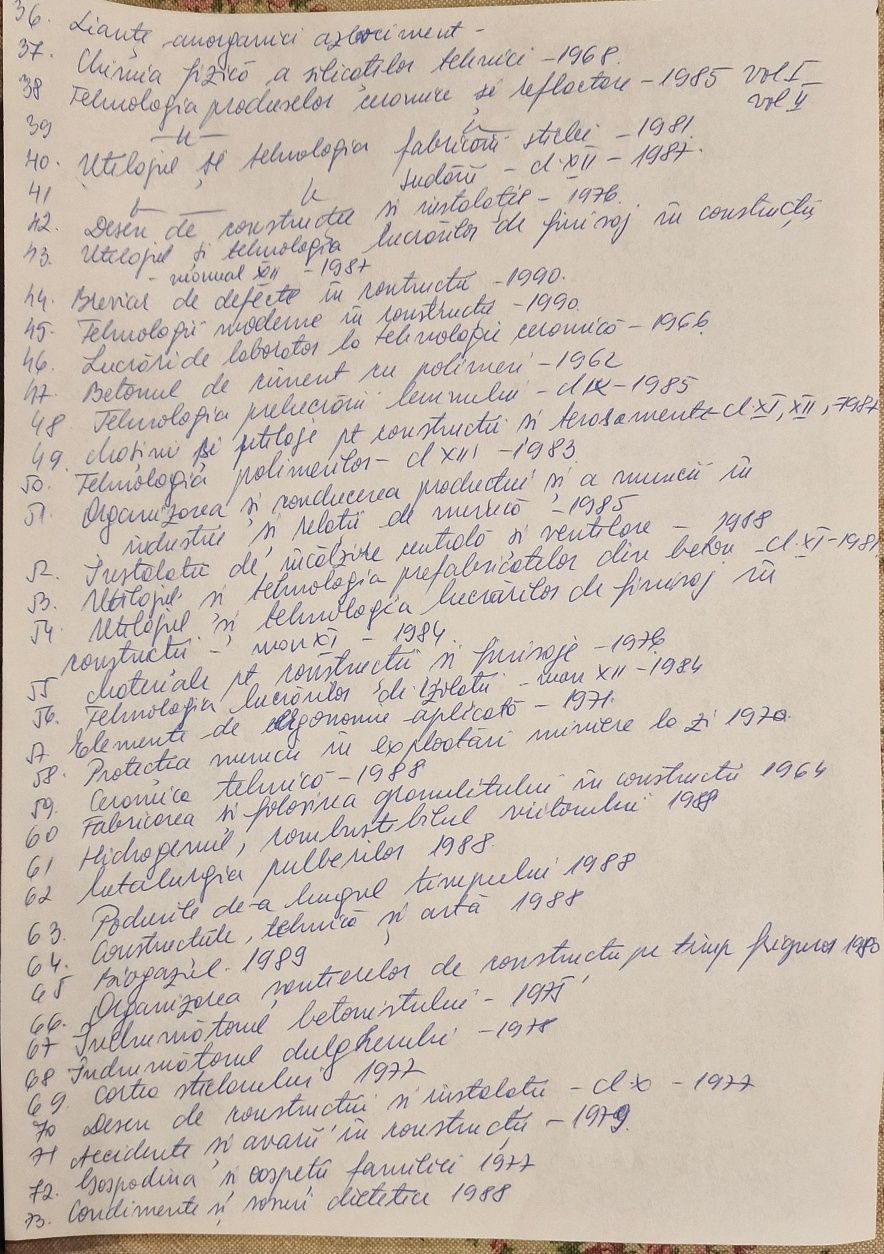 36. Lianțe anorganici azbociment -
37. Chimia fizică a silicaților tehnici - 1968.
38 Tehnologia produselor ceramice și refractare - 1985 vol I
39 -"- -"- vol II
40. Utilajul și tehnologia fabricării sticlei - 1981.
41 -"- -"- sudării - cl. XII - 1987.
42. Desen de construcții și instalații - 1976.
43. Utilajul și tehnologia lucrărilor de finisaj în construcții
- manual XII - 1987
44. Breviar de defecte în construcții - 1990.
45. Tehnologii moderne în construcții - 1990.
46. Lucrări de laborator la tehnologie ceramică - 1966.
47. Betonul de ciment cu polimeri - 1962
48. Tehnologia prelucrării lemnului - cl IX - 1985
49. Mașini și utilaje pt construcții și terasamente - cl. XI, XII, 1987
50. Tehnologia polimerilor - cl XIII - 1983
51. Organizarea și conducerea producției și a muncii în
industrie și relații de muncă - 1985
52. Instalații de încălzire centrală și ventilare - 1988
53. Utilajul și tehnologia prefabricatelor din beton - cl. XI - 1981
54. Utilajul și tehnologia lucrărilor de finisaj în
construcții - man XI - 1984.
55 Materiale pt construcții și finisaje - 1976
56. Tehnologia lucrărilor de izolații - man XII - 1984
57. Elemente de ergonomie aplicată - 1971.
58. Protecția muncii în exploatări miniere la zi 1970.
59. Ceramica tehnică - 1988
60 Fabricarea și folosirea granulitului în construcții 1964
61 Hidrogenul, combustibilul viitorului 1989
62 Metalurgia pulberilor 1988.
63. Podurile de-a lungul timpului 1988
64. Construcțiile, tehnică și artă 1988
65 Biogazul. 1989
66. Organizarea șantierelor de construcții pe timp friguros 1980
67 Îndrumătorul betonistului - 1975
68 Îndrumătorul dulgherului - 1978
69 Cartea sticlarului 1977
70 Desen de construcții și instalații - cl. X - 1977
71 Accidente și avarii în construcții - 1979.
72. Gospodina și oaspeții familiei 1977
73. Condimente și sosuri dietetice 1988